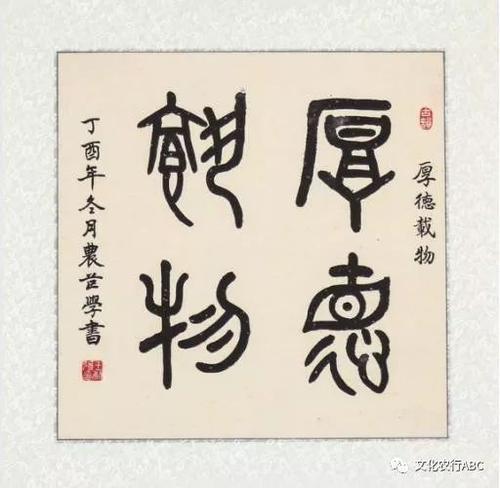 厚德載物
厚德
載物
丁酉年冬月農 學書
文化农行ABC